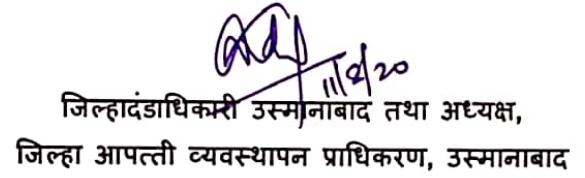 11/8/20
जिल्हादंडाधिकारी उस्मानाबाद तथा अध्यक्ष,
जिल्हा आपत्ती व्यवस्थापन प्राधिकरण, उस्मानाबाद